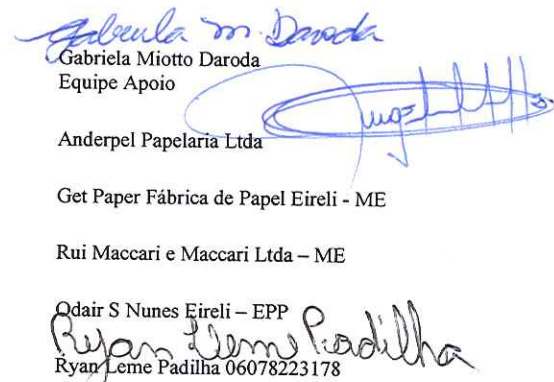 Gabriela M. Daroda
Gabriela Miotto Daroda
Equipe Apoio
Anderpel Papelaria Ltda
Get Paper Fábrica de Papel Eireli - ME
Rui Maccari e Maccari Ltda – ME
Odair S Nunes Eireli – EPP
Ryan Leme Padilha
Ryan Leme Padilha 06078223178